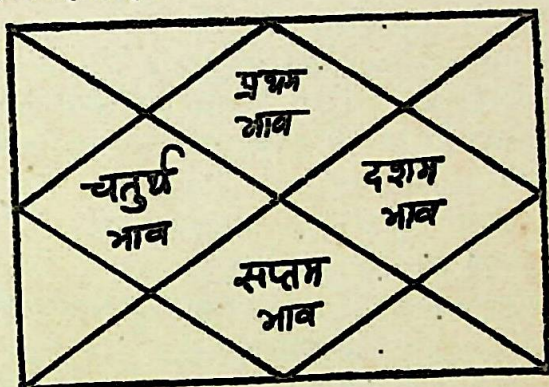 प्रथम
भाव
चतुर्थ
भाव
दशम
भाव
सप्तम
भाव